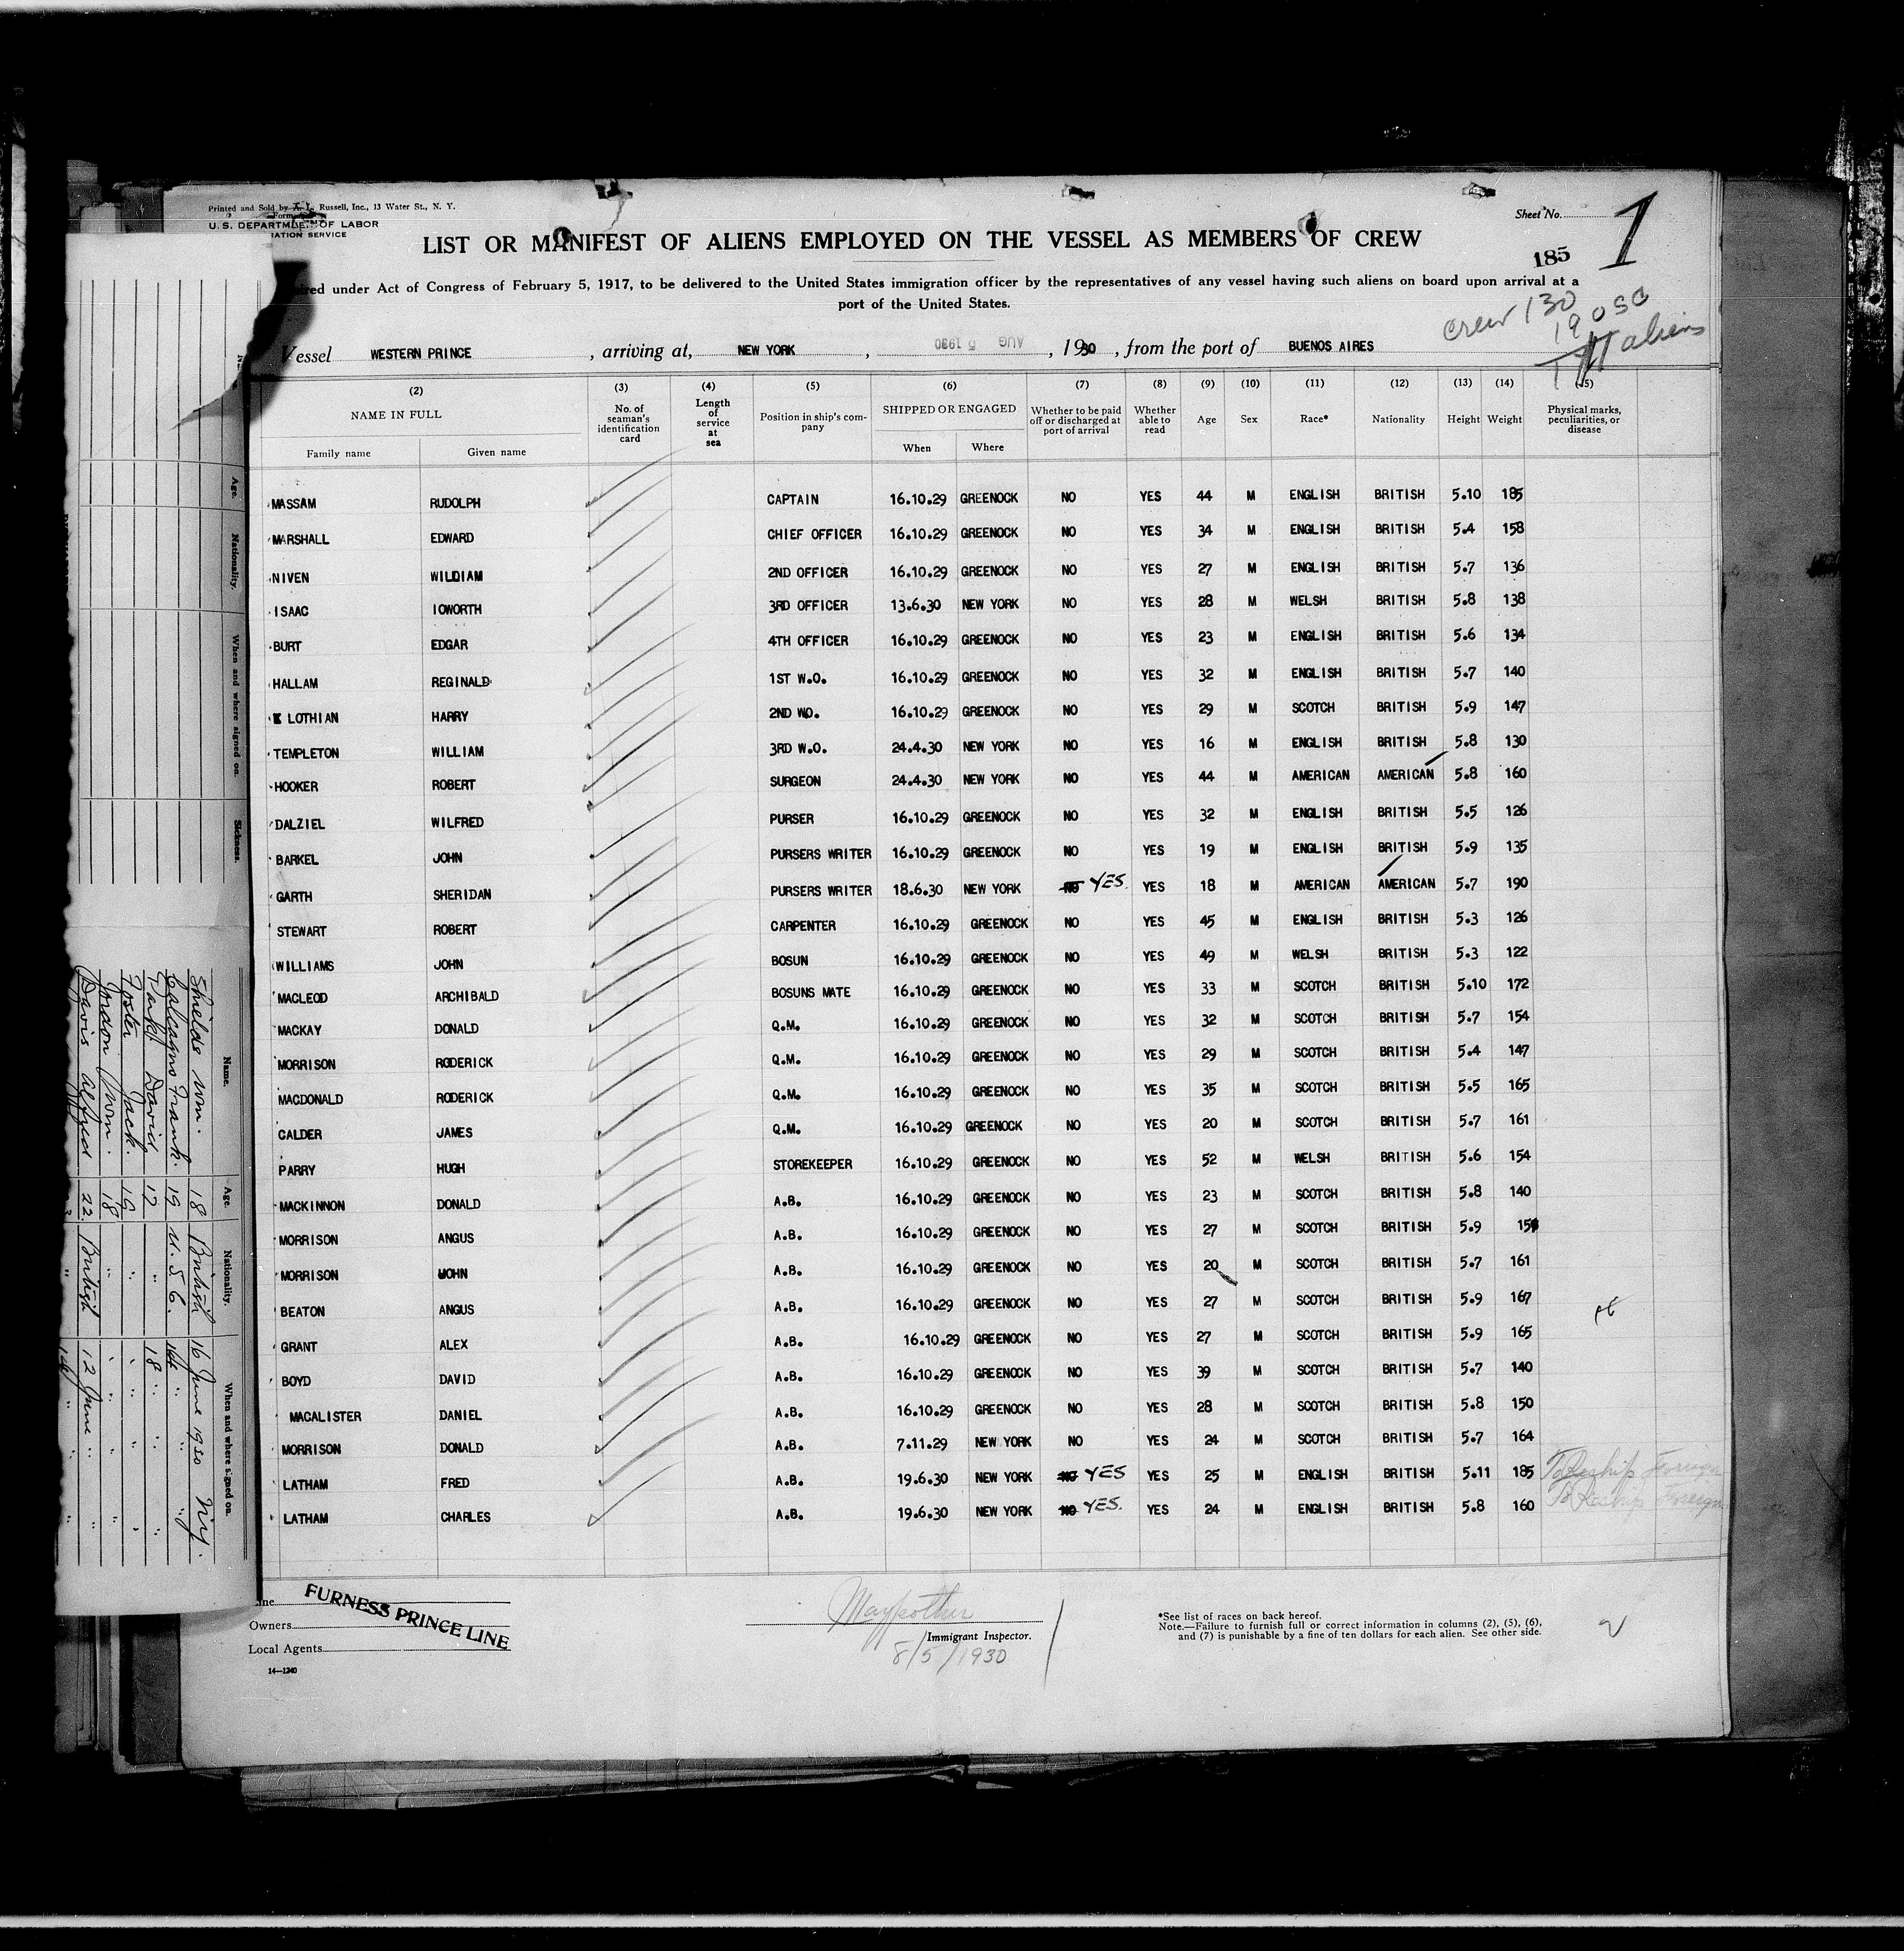 Printed and Sold by A. L. Russell, Inc., 13 Water St., N. Y.
Form
U. S. DEPARTMENT OF LABOR
IATION SERVICE
Sheet No. 1
LIST OR MANIFEST OF ALIENS EMPLOYED ON THE VESSEL AS MEMBERS OF CREW
185
ired under Act of Congress of February 5, 1917, to be delivered to the United States immigration officer by the representatives of any vessel having such aliens on board upon arrival at a
port of the United States.
crew 130
19 USC
111 aliens
Vessel WESTERN PRINCE , arriving at, NEW YORK , AUG 5 1930 , 1930 , from the port of BUENOS AIRES
(2) (3) (4) (5) (6) (7) (8) (9) (10) (11) (12) (13) (14) (15)
NAME IN FULL No. of seaman's identification card Length of service at sea Position in ship's company SHIPPED OR ENGAGED Whether to be paid off or discharged at port of arrival Whether able to read Age Sex Race* Nationality Height Weight Physical marks, peculiarities, or disease
Family name Given name When Where
MASSAM RUDOLPH CAPTAIN 16.10.29 GREENOCK NO YES 44 M ENGLISH BRITISH 5.10 185
MARSHALL EDWARD CHIEF OFFICER 16.10.29 GREENOCK NO YES 34 M ENGLISH BRITISH 5.4 158
NIVEN WILDIAM 2ND OFFICER 16.10.29 GREENOCK NO YES 27 M ENGLISH BRITISH 5.7 136
ISAAC IOWORTH 3RD OFFICER 13.6.30 NEW YORK NO YES 28 M WELSH BRITISH 5.8 138
BURT EDGAR 4TH OFFICER 16.10.29 GREENOCK NO YES 23 M ENGLISH BRITISH 5.6 134
HALLAM REGINALD 1ST W.O. 16.10.29 GREENOCK NO YES 32 M ENGLISH BRITISH 5.7 140
LOTHIAN HARRY 2ND WO. 16.10.29 GREENOCK NO YES 29 M SCOTCH BRITISH 5.9 147
TEMPLETON WILLIAM 3RD W.O. 24.4.30 NEW YORK NO YES 16 M ENGLISH BRITISH 5.8 130
HOOKER ROBERT SURGEON 24.4.30 NEW YORK NO YES 44 M AMERICAN AMERICAN 5.8 160
DALZIEL WILFRED PURSER 16.10.29 GREENOCK NO YES 32 M ENGLISH BRITISH 5.5 126
BARKEL JOHN PURSERS WRITER 16.10.29 GREENOCK NO YES 19 M ENGLISH BRITISH 5.9 135
GARTH SHERIDAN PURSERS WRITER 18.6.30 NEW YORK NO YES. YES 18 M AMERICAN AMERICAN 5.7 190
STEWART ROBERT CARPENTER 16.10.29 GREENOCK NO YES 45 M ENGLISH BRITISH 5.3 126
WILLIAMS JOHN BOSUN 16.10.29 GREENOCK NO YES 49 M WELSH BRITISH 5.3 122
MACLEOD ARCHIBALD BOSUNS MATE 16.10.29 GREENOCK NO YES 33 M SCOTCH BRITISH 5.10 172
MACKAY DONALD Q.M. 16.10.29 GREENOCK NO YES 32 M SCOTCH BRITISH 5.7 154
MORRISON RODERICK Q.M. 16.10.29 GREENOCK NO YES 29 M SCOTCH BRITISH 5.4 147
MACDONALD RODERICK Q.M. 16.10.29 GREENOCK NO YES 35 M SCOTCH BRITISH 5.5 165
CALDER JAMES Q.M. 16.10.29 GREENOCK NO YES 20 M SCOTCH BRITISH 5.7 161
PARRY HUGH STOREKEEPER 16.10.29 GREENOCK NO YES 52 M WELSH BRITISH 5.6 154
MACKINNON DONALD A.B. 16.10.29 GREENOCK NO YES 23 M SCOTCH BRITISH 5.8 140
MORRISON ANGUS A.B. 16.10.29 GREENOCK NO YES 27 M SCOTCH BRITISH 5.9
MORRISON JOHN A.B. 16.10.29 GREENOCK NO YES 20 M SCOTCH BRITISH 5.7 161
BEATON ANGUS A.B. 16.10.29 GREENOCK NO YES 27 M SCOTCH BRITISH 5.9 167
GRANT ALEX A.B. 16.10.29 GREENOCK NO YES 27 M SCOTCH BRITISH 5.9 165
BOYD DAVID A.B. 16.10.29 GREENOCK NO YES 39 M SCOTCH BRITISH 5.7 140
MACALISTER DANIEL A.B. 16.10.29 GREENOCK NO YES 28 M SCOTCH BRITISH 5.8 150
MORRISON DONALD A.B. 7.11.29 NEW YORK NO YES 24 M SCOTCH BRITISH 5.7 164
LATHAM FRED A.B. 19.6.30 NEW YORK NO YES YES 25 M ENGLISH BRITISH 5.11 185 To Reship Foreign
LATHAM CHARLES A.B. 19.6.30 NEW YORK NO YES. YES 24 M ENGLISH BRITISH 5.8 160 To Reship Foreign
ine
Owners
Local Agents
FURNESS PRINCE LINE
14—1240
Immigrant Inspector.
8/5/1930
*See list of races on back hereof.
Note.—Failure to furnish full or correct information in columns (2), (5), (6),
and (7) is punishable by a fine of ten dollars for each alien. See other side.
Age. Nationality. When and where signed on. Sickness.
Name. Age. Nationality. When and where signed on.
Shields Wm. 18 British 16 June 1930 N.Y.
Calcagno Frank. 19 U.S.C. " "
David 17 " 18 " " "
Foster Jack. 19 " " " " "
Gordon Wm. 18 " " " " "
Davis Alfred 22 British 12 June " "